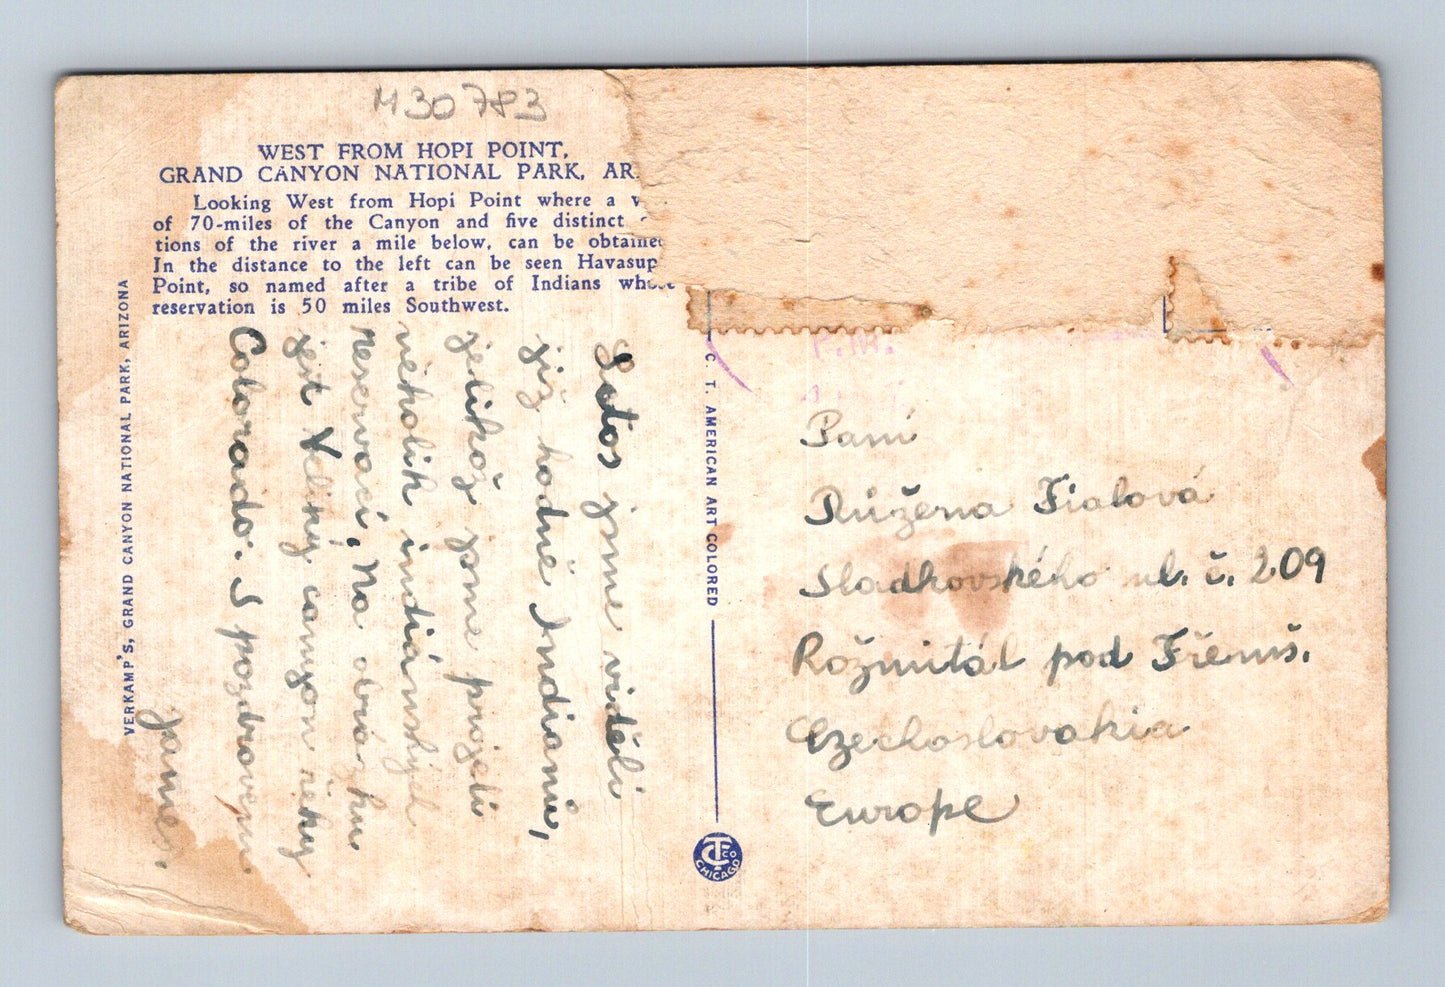 M30783
WEST FROM HOPI POINT,
GRAND CANYON NATIONAL PARK, AR
Looking West from Hopi Point where a v
of 70-miles of the Canyon and five distinct
tions of the river a mile below, can be obtained
In the distance to the left can be seen Havasup
Point, so named after a tribe of Indians whose
reservation is 50 miles Southwest.
VERKAMP'S, GRAND CANYON NATIONAL PARK, ARIZONA
Letos jsme viděli
již hodně Indianů,
jelikož jsme projeli
několik indiánských
reservací. Na obrázku
jest Veliký canyon řeky
Colorado. S pozdravem
James.
C. T. AMERICAN ART COLORED
CT CO
CHICAGO
P.M.
Paní
Růžena Fialová
Sladkovského ul. č. 209
Rožmitál pod Třemš.
Czechoslovakia
Europe